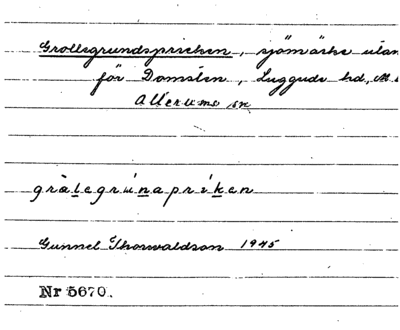 Grollegrundspricken, sjömärke utan
för Domsten, Luggude hd, M
Allerums sn
gràlegrúnapríken
Gunnel Thorwaldson 1945
Nr 5670.